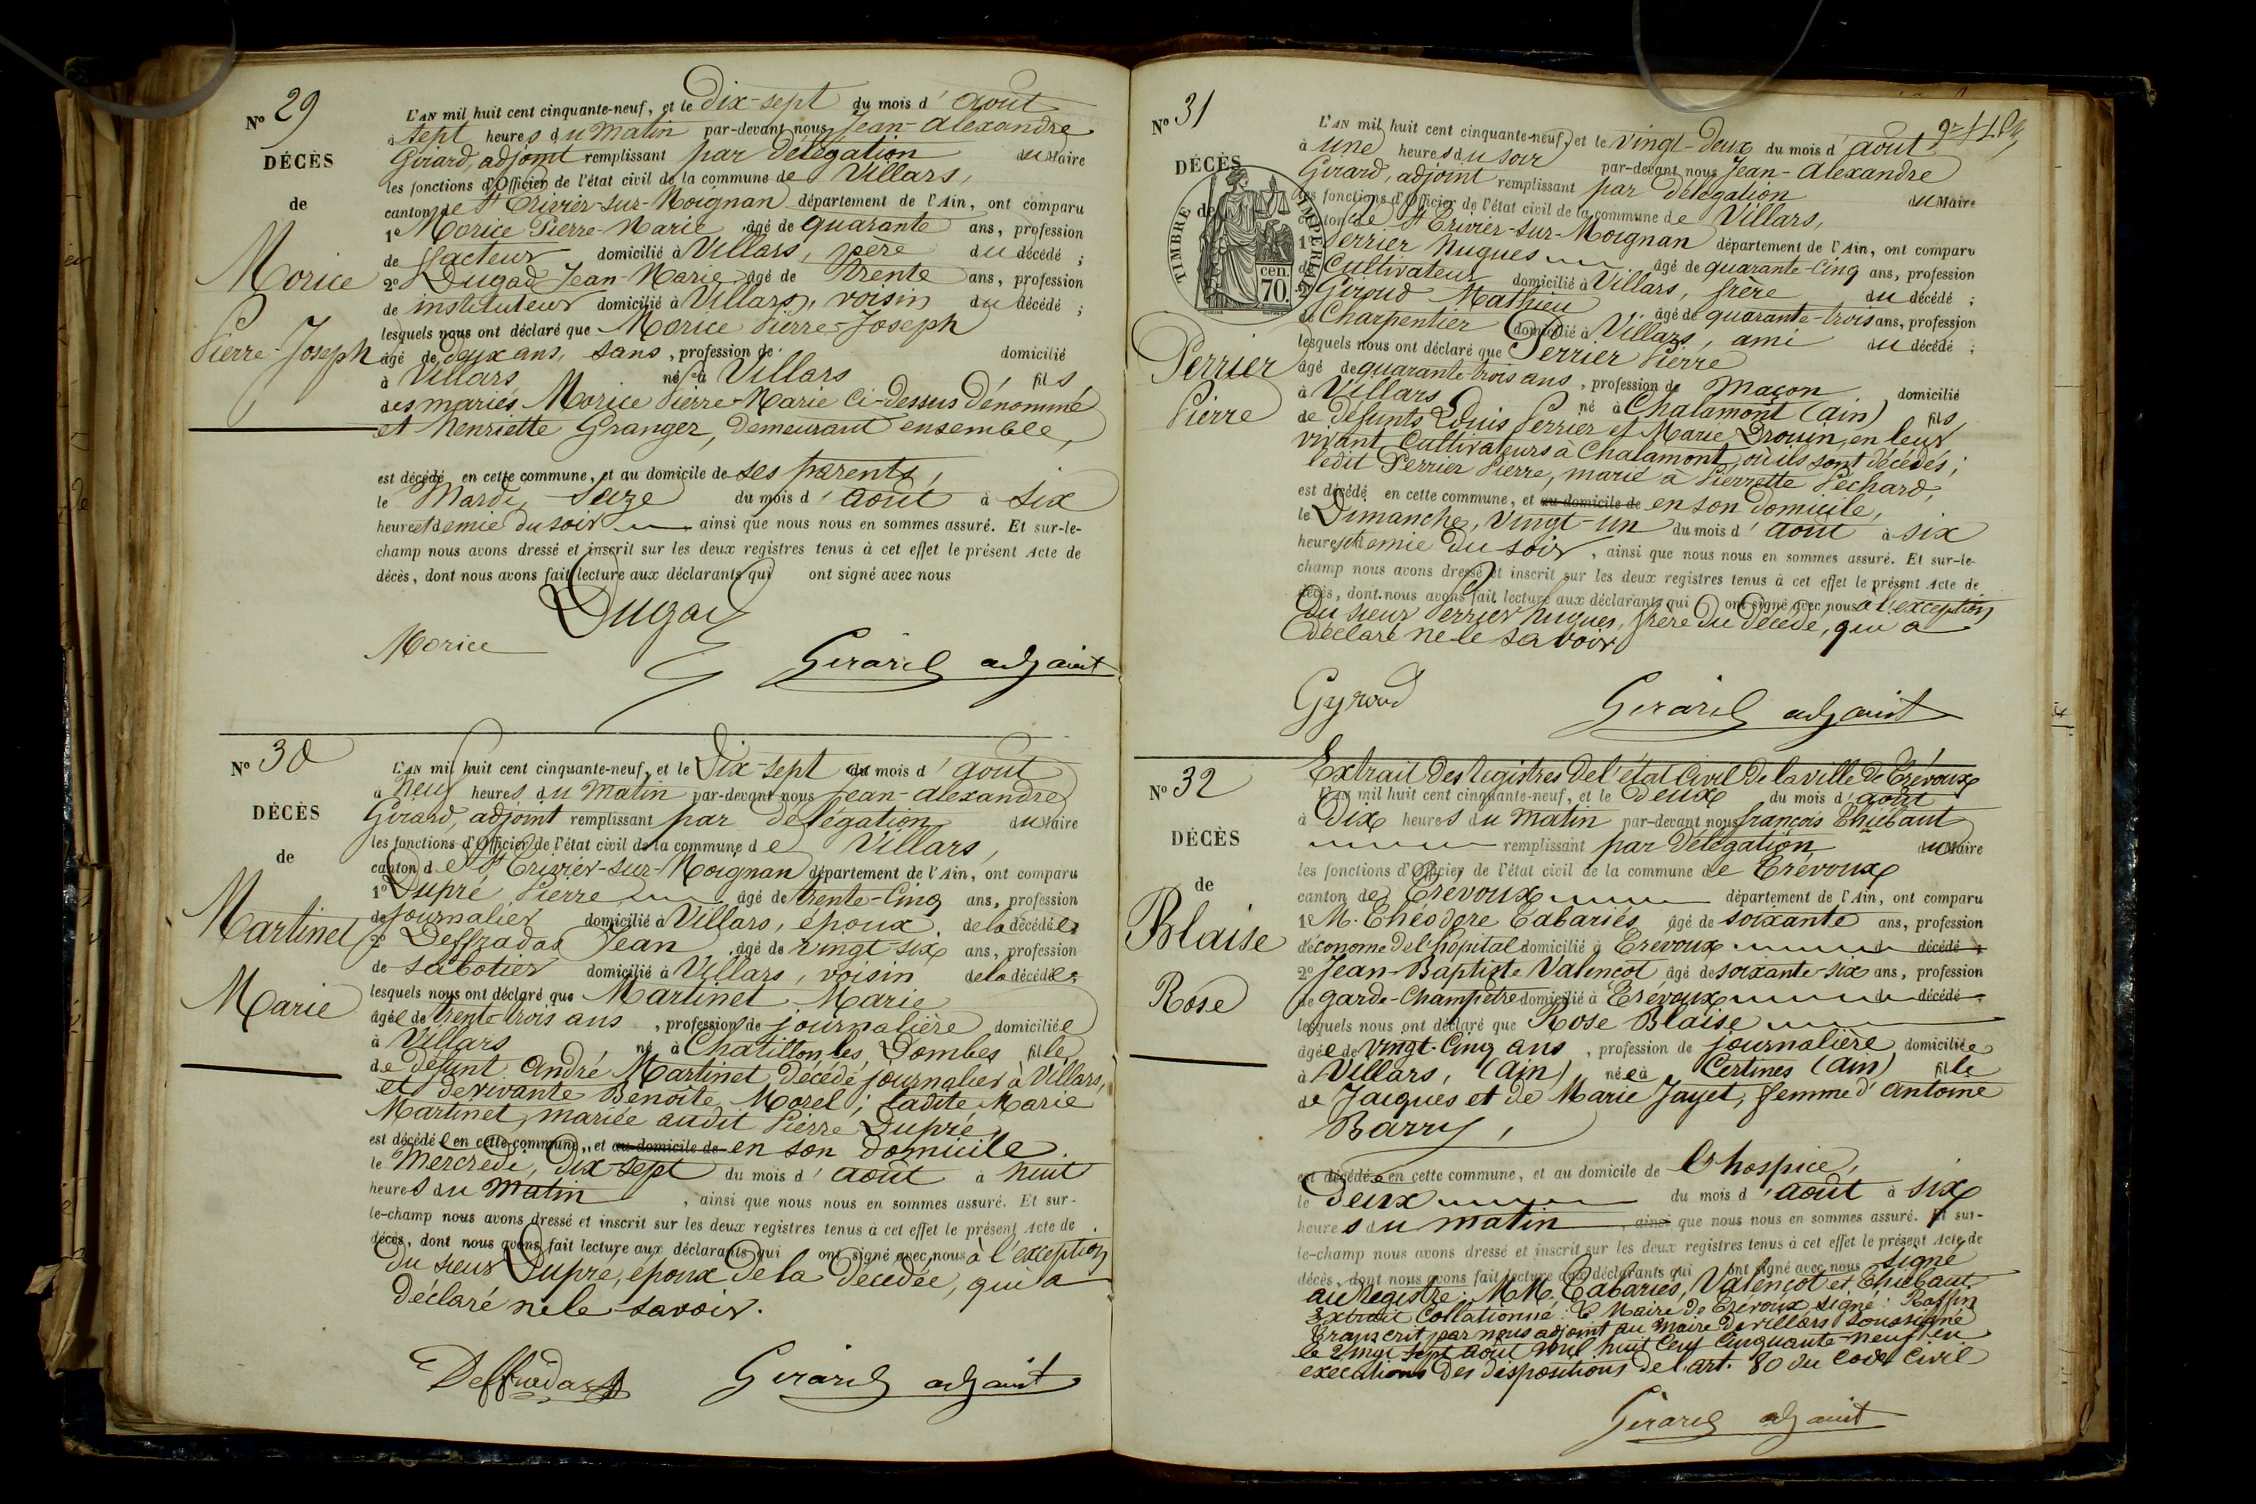 Nº 29
DÉCÈS
de
Morice
Pierre-Joseph
L'AN mil huit cent cinquante-neuf, et le Dix-sept du mois d'août
à sept heures du matin par-devant nous Jean-Alexandre
Girard, adjoint remplissant par délégation du Maire
les fonctions d'Officier de l'état civil de la commune de Villars,
canton de St Trivier-sur-Moignan département de l'Ain, ont comparu
1º Morice Pierre-Marie âgé de quarante ans, profession
de facteur domicilié à Villars, père du décédé ;
2º Dugad Jean-Marie âgé de trente ans, profession
de instituteur domicilié à Villars, voisin du décédé ;
lesquels nous ont déclaré que Morice Pierre-Joseph
âgé de deux ans, sans, profession de domicilié
à Villars né à Villars fils
des mariés Morice Pierre-Marie ci-dessus dénommé
et henriette Granger, demeurant ensemble,
est décédé en cette commune, et au domicile de ses parents,
le Mardi, Seize du mois d'août à six
heures et demie du soir ainsi que nous nous en sommes assuré. Et sur-le-
champ nous avons dressé et inscrit sur les deux registres tenus à cet effet le présent Acte de
décès, dont nous avons fait lecture aux déclarants qui ont signé avec nous
Dugad
Morice
Girard adjoint
Nº 30
DÉCÈS
de
Martinet
Marie
L'AN mil huit cent cinquante-neuf, et le Dix-sept du mois d'août
à Neuf heures du matin par-devant nous Jean-Alexandre
Girard, adjoint remplissant par délégation du Maire
les fonctions d'Officier de l'état civil de la commune de Villars,
canton de St Trivier-sur-Moignan département de l'Ain, ont comparu
1º Dupré Pierre âgé de trente-cinq ans, profession
de journalier domicilié à Villars, époux de la décédée
2º Deffradas Jean âgé de vingt-six ans, profession
de sabotier domicilié à Villars, voisin de la décédée
lesquels nous ont déclaré que Martinet Marie
âgée de trente-trois ans, profession de journalière domiciliée
à Villars né à Chatillon les Dombes fille
de défunt André Martinet décédé journalier à Villars,
et de vivante Benoite Morel ; ladite Marie
Martinet, mariée audit Pierre Dupré,
est décédée en cette commune, et au domicile de en son domicile
le Mercredi, dix-sept du mois d'août à huit
heures du matin, ainsi que nous nous en sommes assuré. Et sur-
le-champ nous avons dressé et inscrit sur les deux registres tenus à cet effet le présent Acte de
décès, dont nous avons fait lecture aux déclarants qui ont signé avec nous à l'exception
du sieur Dupré, époux de la décédée, qui a
déclaré ne le savoir.
Deffradas
Girard adjoint
Nº 31
DÉCÈS
de
TIMBRE IMPÉRIAL
cen.
70.
Perrier
Pierre
L'AN mil huit cent cinquante-neuf, et le vingt-deux du mois d'août
à une heures du soir par-devant nous Jean-Alexandre
Girard, adjoint remplissant par délégation du Maire
les fonctions d'Officier de l'état civil de la commune de Villars,
canton de St Trivier-sur-Moignan département de l'Ain, ont comparu
1º Perrier hugues âgé de quarante-cinq ans, profession
de Cultivateur domicilié à Villars, frère du décédé ;
2º Giroud Mathieu âgé de quarante-trois ans, profession
de Charpentier domicilié à Villars, ami du décédé ;
lesquels nous ont déclaré que Perrier Pierre
âgé de quarante-trois ans, profession de maçon domicilié
à Villars né à Chalamont (ain) fils
de défunts Louis Perrier et Marie Drouin, en leur
vivant cultivateurs à Chalamont où ils sont décédés ;
ledit Perrier Pierre, marié à Pierrette Péchard,
est décédé en cette commune, et au domicile de en son domicile,
le Dimanche, vingt-un du mois d'août à six
heures et demie du soir, ainsi que nous nous en sommes assuré. Et sur-le-
champ nous avons dressé et inscrit sur les deux registres tenus à cet effet le présent Acte de
décès, dont nous avons fait lecture aux déclarants qui ont signé avec nous à l'exception
du sieur Perrier hugues, frère du décédé, qui a
déclaré ne le savoir
Gyroud
Girard adjoint
Nº 32
DÉCÈS
de
Blaise
Rose
Extrait des registres de l'état civil de la ville de Trévoux
L'AN mil huit cent cinquante-neuf, et le deux du mois d'août
à Dix heures du matin par-devant nous françois Thiébaut
remplissant par délégation du Maire
les fonctions d'Officier de l'état civil de la commune de Trévoux
canton de Trévoux département de l'Ain, ont comparu
1º M. Théodore Cabariés âgé de soixante ans, profession
d'économe de l'hôpital domicilié à Trévoux d décédé ;
2º Jean-Baptiste Valençot âgé de soixante-six ans, profession
de garde-champêtre domicilié à Trévoux d décédé.
lesquels nous ont déclaré que Rose Blaise
âgée de vingt-cinq ans, profession de journalière domiciliée
à Villars, (Ain), née à Certines (Ain) fille
de Jacques et de Marie Jayet, femme d'antoine
Barry,
est décédé en cette commune, et au domicile de l'hospice,
le deux du mois d'août à six
heures du matin, ainsi que nous nous en sommes assuré. Et sur-
le-champ nous avons dressé et inscrit sur les deux registres tenus à cet effet le présent Acte de
décès, dont nous avons fait lecture aux déclarants qui ont signé avec nous signé
au registre : MM. Cabariés, Valençot et Thiébaut
Extrait Collationné : Le Maire de Trévoux signé : Raffin
Transcrit par nous adjoint au maire de villars soussigné
le vingt sept août mil huit cent cinquante-neuf en
exécutions des dispositions de l'art. 80 du code civil
Girard adjoint